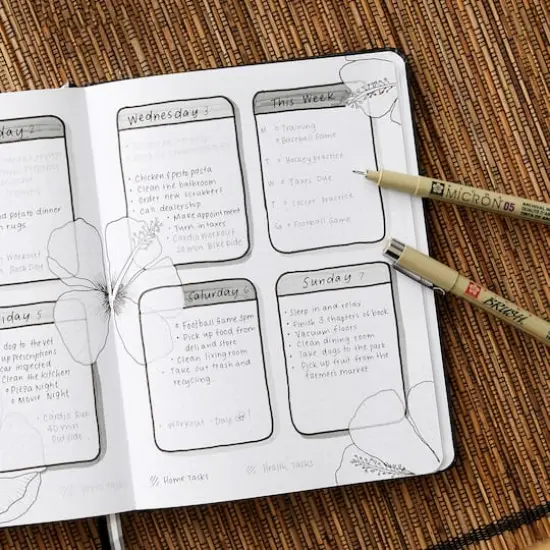 day 2
nd potato dinner
n rugs
workout
Back Day
iday 5
dog to the vet
up prescriptions
car inspected
Clean the kitchen
Pizza Night
Movie Night
Cardio Run
40 min
Outside
Wednesday 3
Chicken pesto pasta
Clean the bathroom
Order new scrubbers
Call dealership
Make appointment
Turn in taxes
Cardio Workout
20 min Bike Ride
This Week
M Training
Baseball Game
T Hockey Practice
W Taxes Due
T Soccer Practice
Sa Football Game
Saturday 6
Football Game 5pm
Pick up food from
deli and store
Clean living room
Take out trash and
recycling
Workout - Day off!
Sunday 7
Sleep in and relax
Finish 3 chapters of book
Vacuum floors
Clean dining room
Take dogs to the park
Pick up fruit from the
farmers market
Home Tasks
Health Tasks
MICRON 05